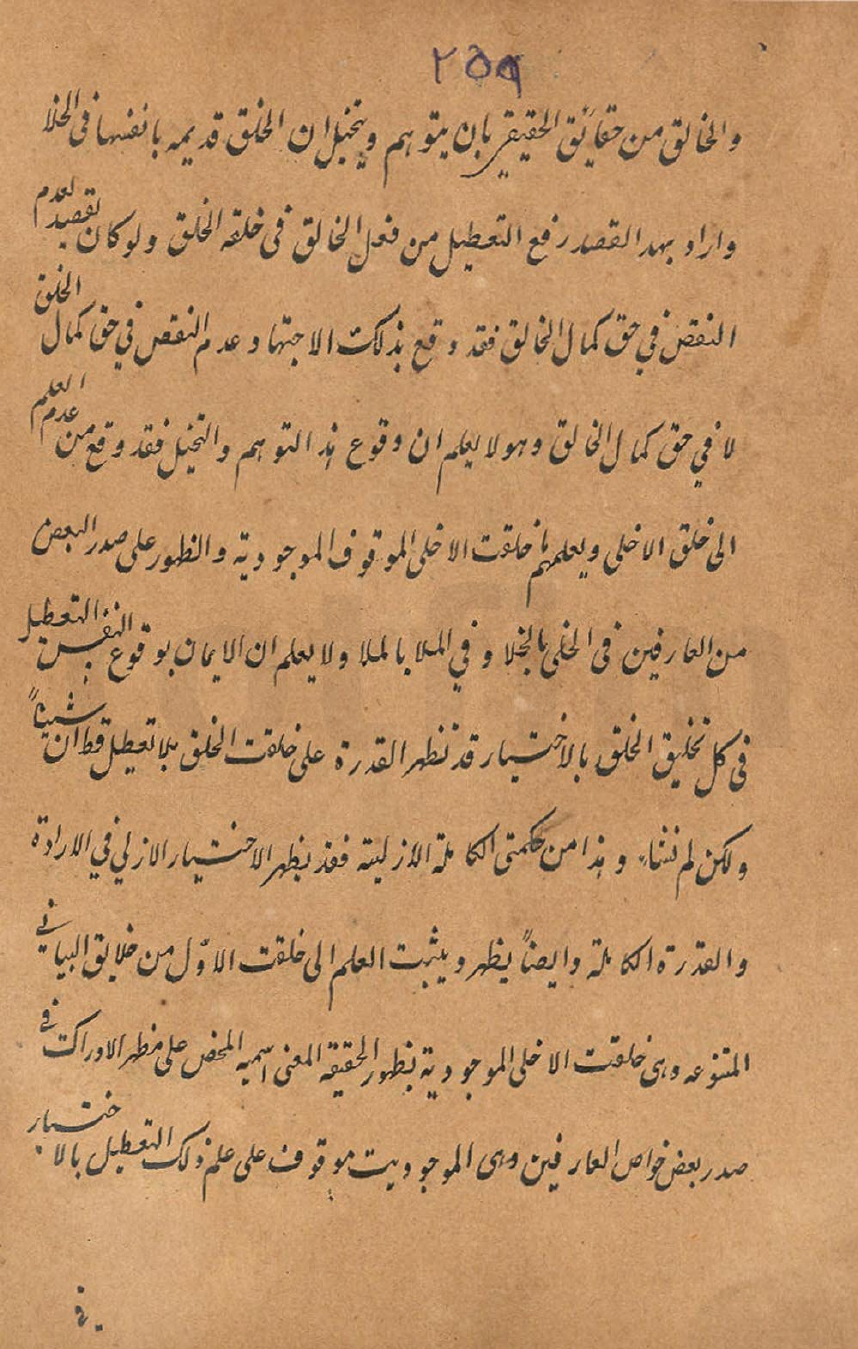 ٢٥٩
والخالق من حقايق الحقيقي بان يتوهم ويتخيل ان الخلق قديمه بانفسها في الخلا
واراد بهد القصد رفع التعطيل من فعل الخالق في خلقه الخلق ولو كان لعدم
النقص في حق كمال الخالق فقد وقع بذلك الاجتهاد عدم النقص في حق كمال الخلق
لا في حق كمال الخالق وهو لا يعلم ان وقوع هذ التوهم والتخيل فقد وقع من عدم العلم
الى خلق الاخلى ويعلمهم خلقت الاخلى الموقوف الموجودية والظهور على صدر البعض
من العارفين في الخلى بالخلا وفي الملا بالملا ولا يعلم ان الايمان بوقوع النفس التعطيل
في كل تخليق الخلق بالاختيار قد تظهر القدرة على خلقت الخلق بلا تعطيل قط ان شيئاً
ولكن لم نشاء وهذا من حكمتى الكاملة الازلية فقد يظهر الاختيار الازلي في الارادة
والقدرة الكاملة وايضاً يظهر ويثبت العلم الى خلقت الاوّل من خلايق البياني
المتنوعه وهى خلقت الاخلى الموجودية بظهور الحقيقه المعنى اسميه المحض على مظهر الاوراكت في
صدر بعض خواص العارفين وهى الموجوديت موقوف على علم ذلك التعطيل بالاختيار
في